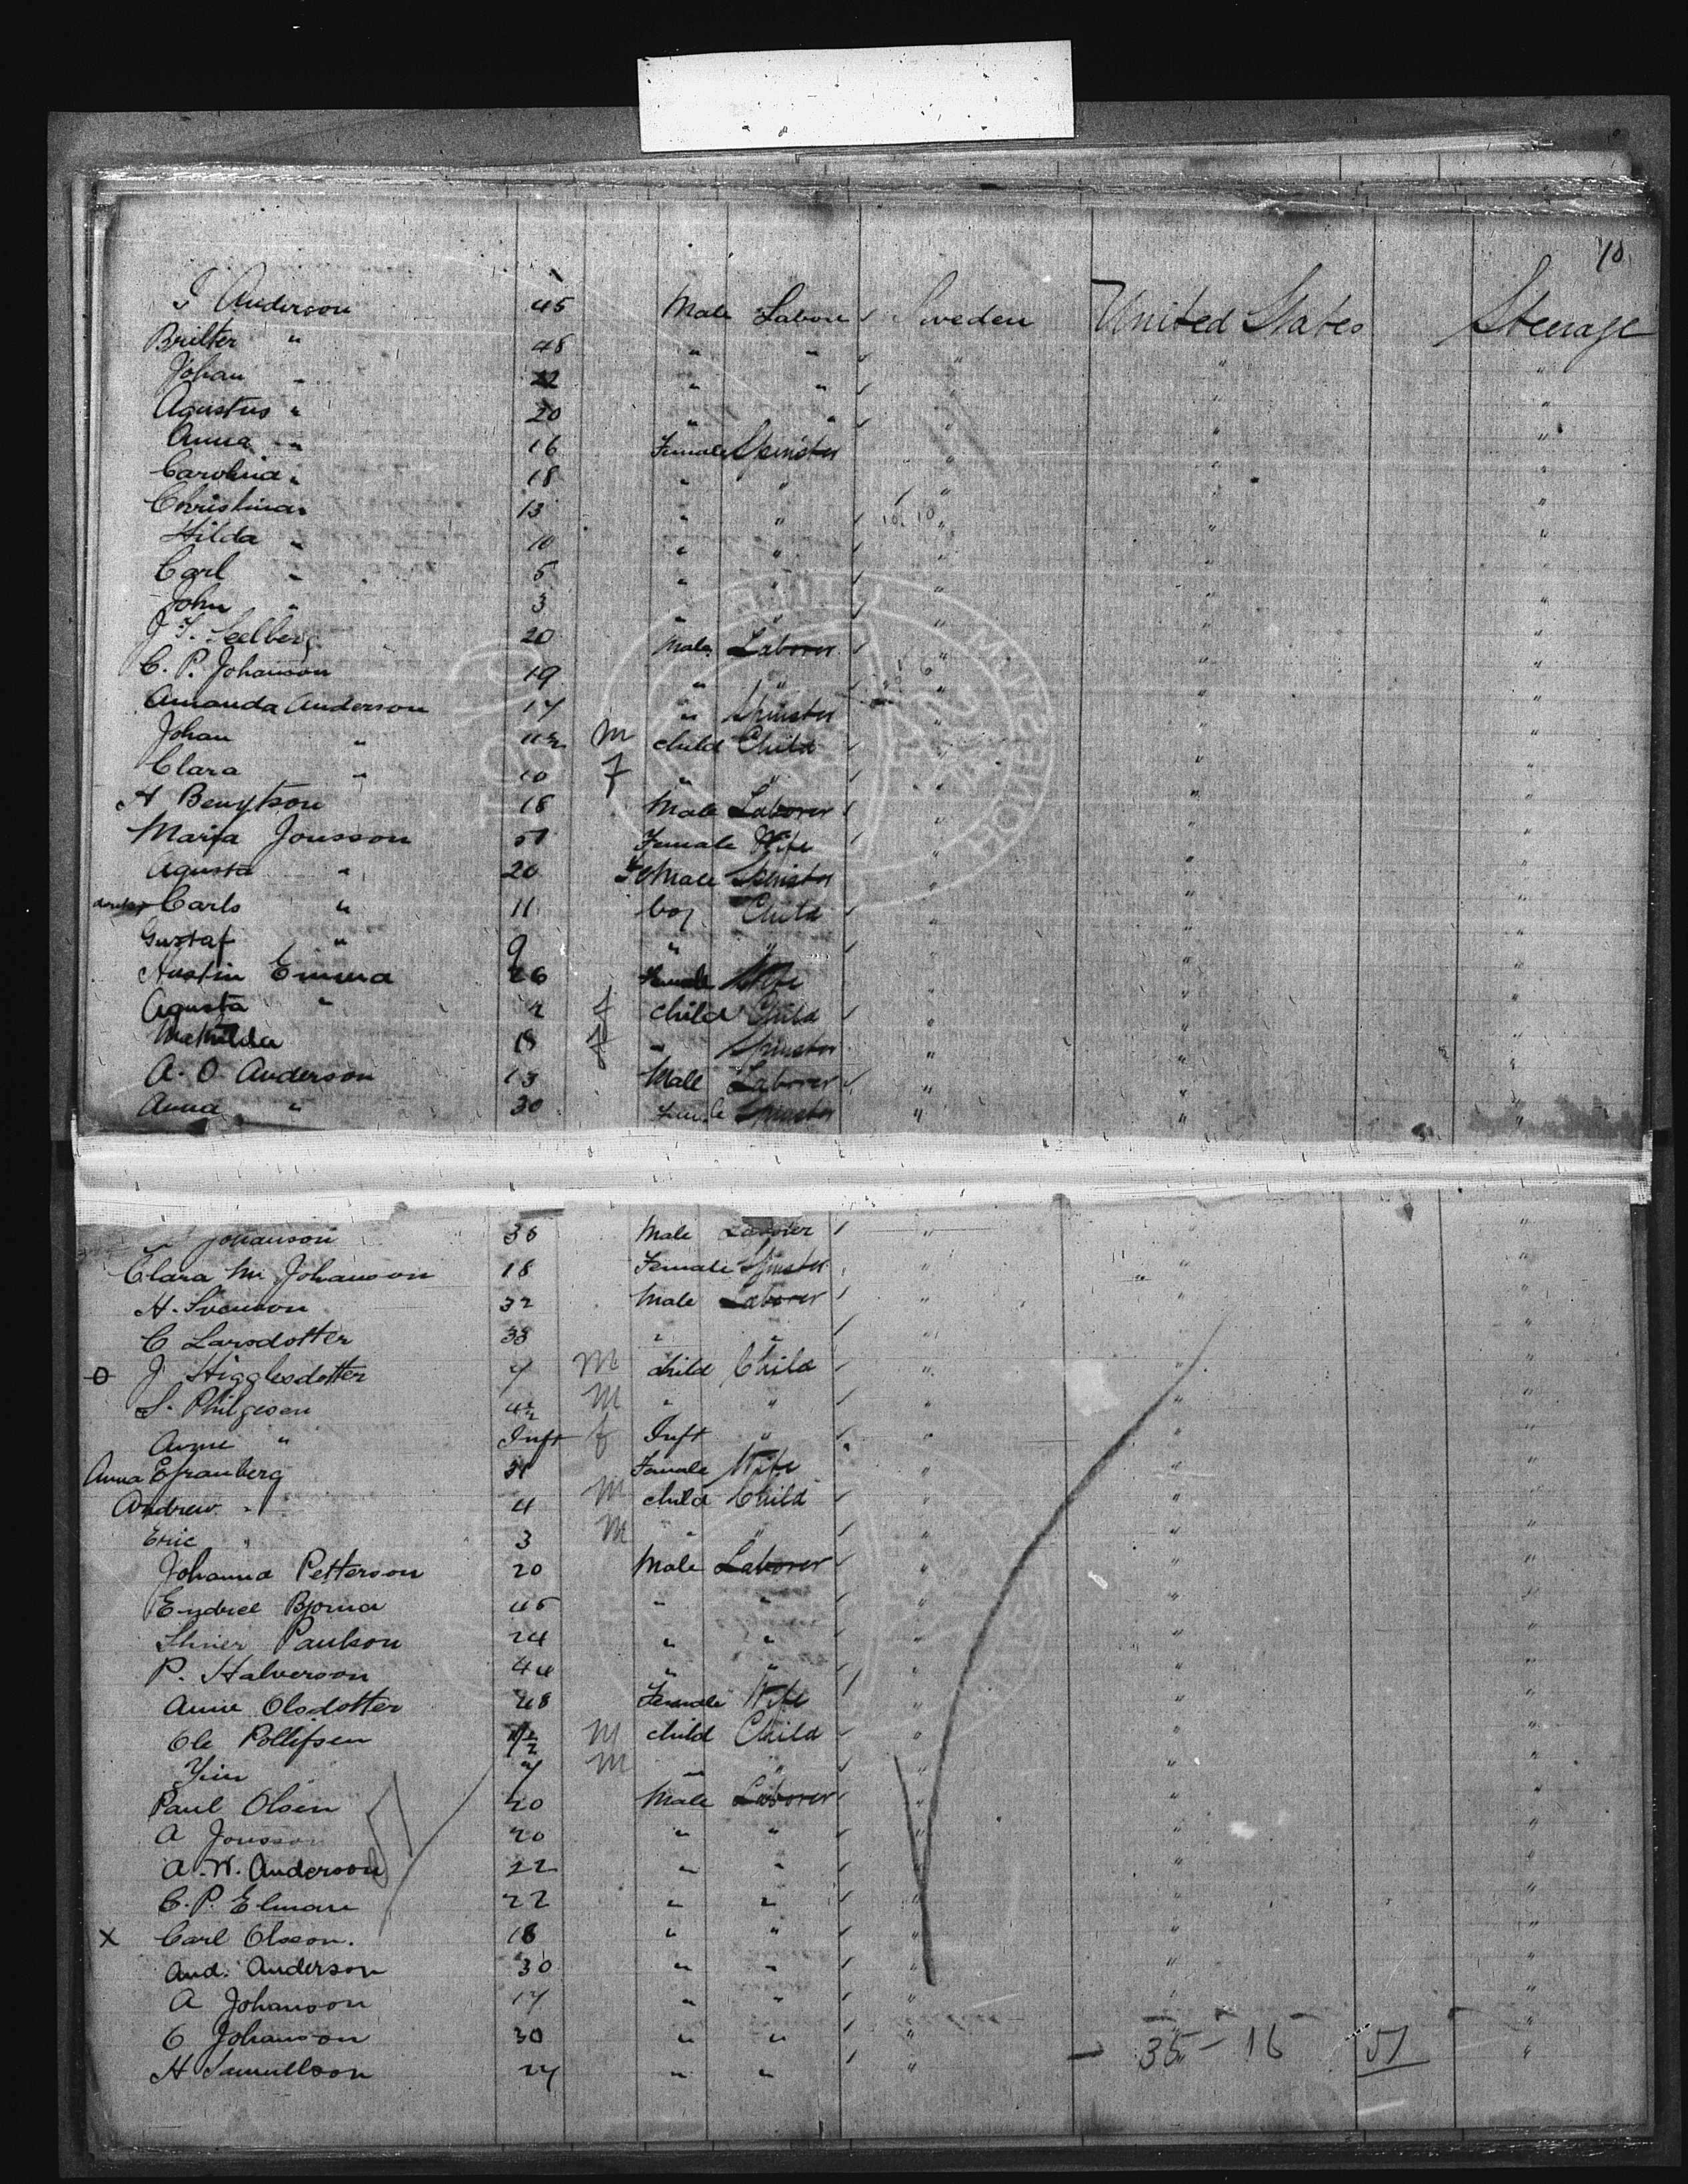 10
I Anderson 45 Male Labou Sweden United States Steerage
Britter " 48 " " " " "
Johan " 22 " " " " "
Agustus " 20 " " " " "
Anna " 16 Female Spinster " " "
Carolina " 18 " " " " "
Christina " 13 " " " " "
Hilda " 10 " " " " "
Carl " 5 " " " " "
John " 3 " " " " "
J. Seelberg 20 Male Laborer " " "
C. P. Johanson 19 " " " " "
Amanda Anderson 17 " Spinster " " "
Johan " 11 1/2 M child Child " " "
Clara " 10 F " " " " "
A Bengtson 18 Male Laborer " " "
Maria Jonsson 51 Female Wife " " "
Agusta " 20 Female Spinster " " "
Carls " 11 boy Child " " "
Gustaf " 9 " " " " "
Austin Emma 26 Female Wife " " "
Agusta " 2 f child Child " " "
Mathilda 18 f " Spinster " " "
A. O. Anderson 13 Male Laborer " " "
Anna " 30 Female Spinster " " "
Johanson 35 Male Laborer " "
Clara M Johanson 18 Female Spinster " " "
H. Svenson 32 Male Laborer " " "
C Larsdotter 33 " " " "
J Higglesdotter 7 M child Child " " "
S. Philgesen 4 1/2 M " " " " "
Anne " Inft f Inft " " " "
Anna Efranberg 31 Female Wife " " "
Andrew " 4 M child Child " " "
Eric " 3 M " " " " "
Johanna Petterson 20 Male Laborer " " "
Endree Bjorna 45 " " " " "
Paulson 24 " " " " "
P. Halverson 44 " " " " "
Anne Olsdotter 48 Female Wife " " "
Ole Pollifsen M child Child " " "
7 M " " " " "
Paul Olsen 20 Male Laborer " " "
A Jonsson 20 " " " " "
A. W. Anderson 22 " " " " "
C. P. Elman 22 " " " " "
X Carl Olsson. 18 " " " " "
And. Anderson 30 " " " " "
A Johanson 17 " " " " "
C Johanson 30 " " " " "
H Samuelson 27 " " " 35 - 16 51 "